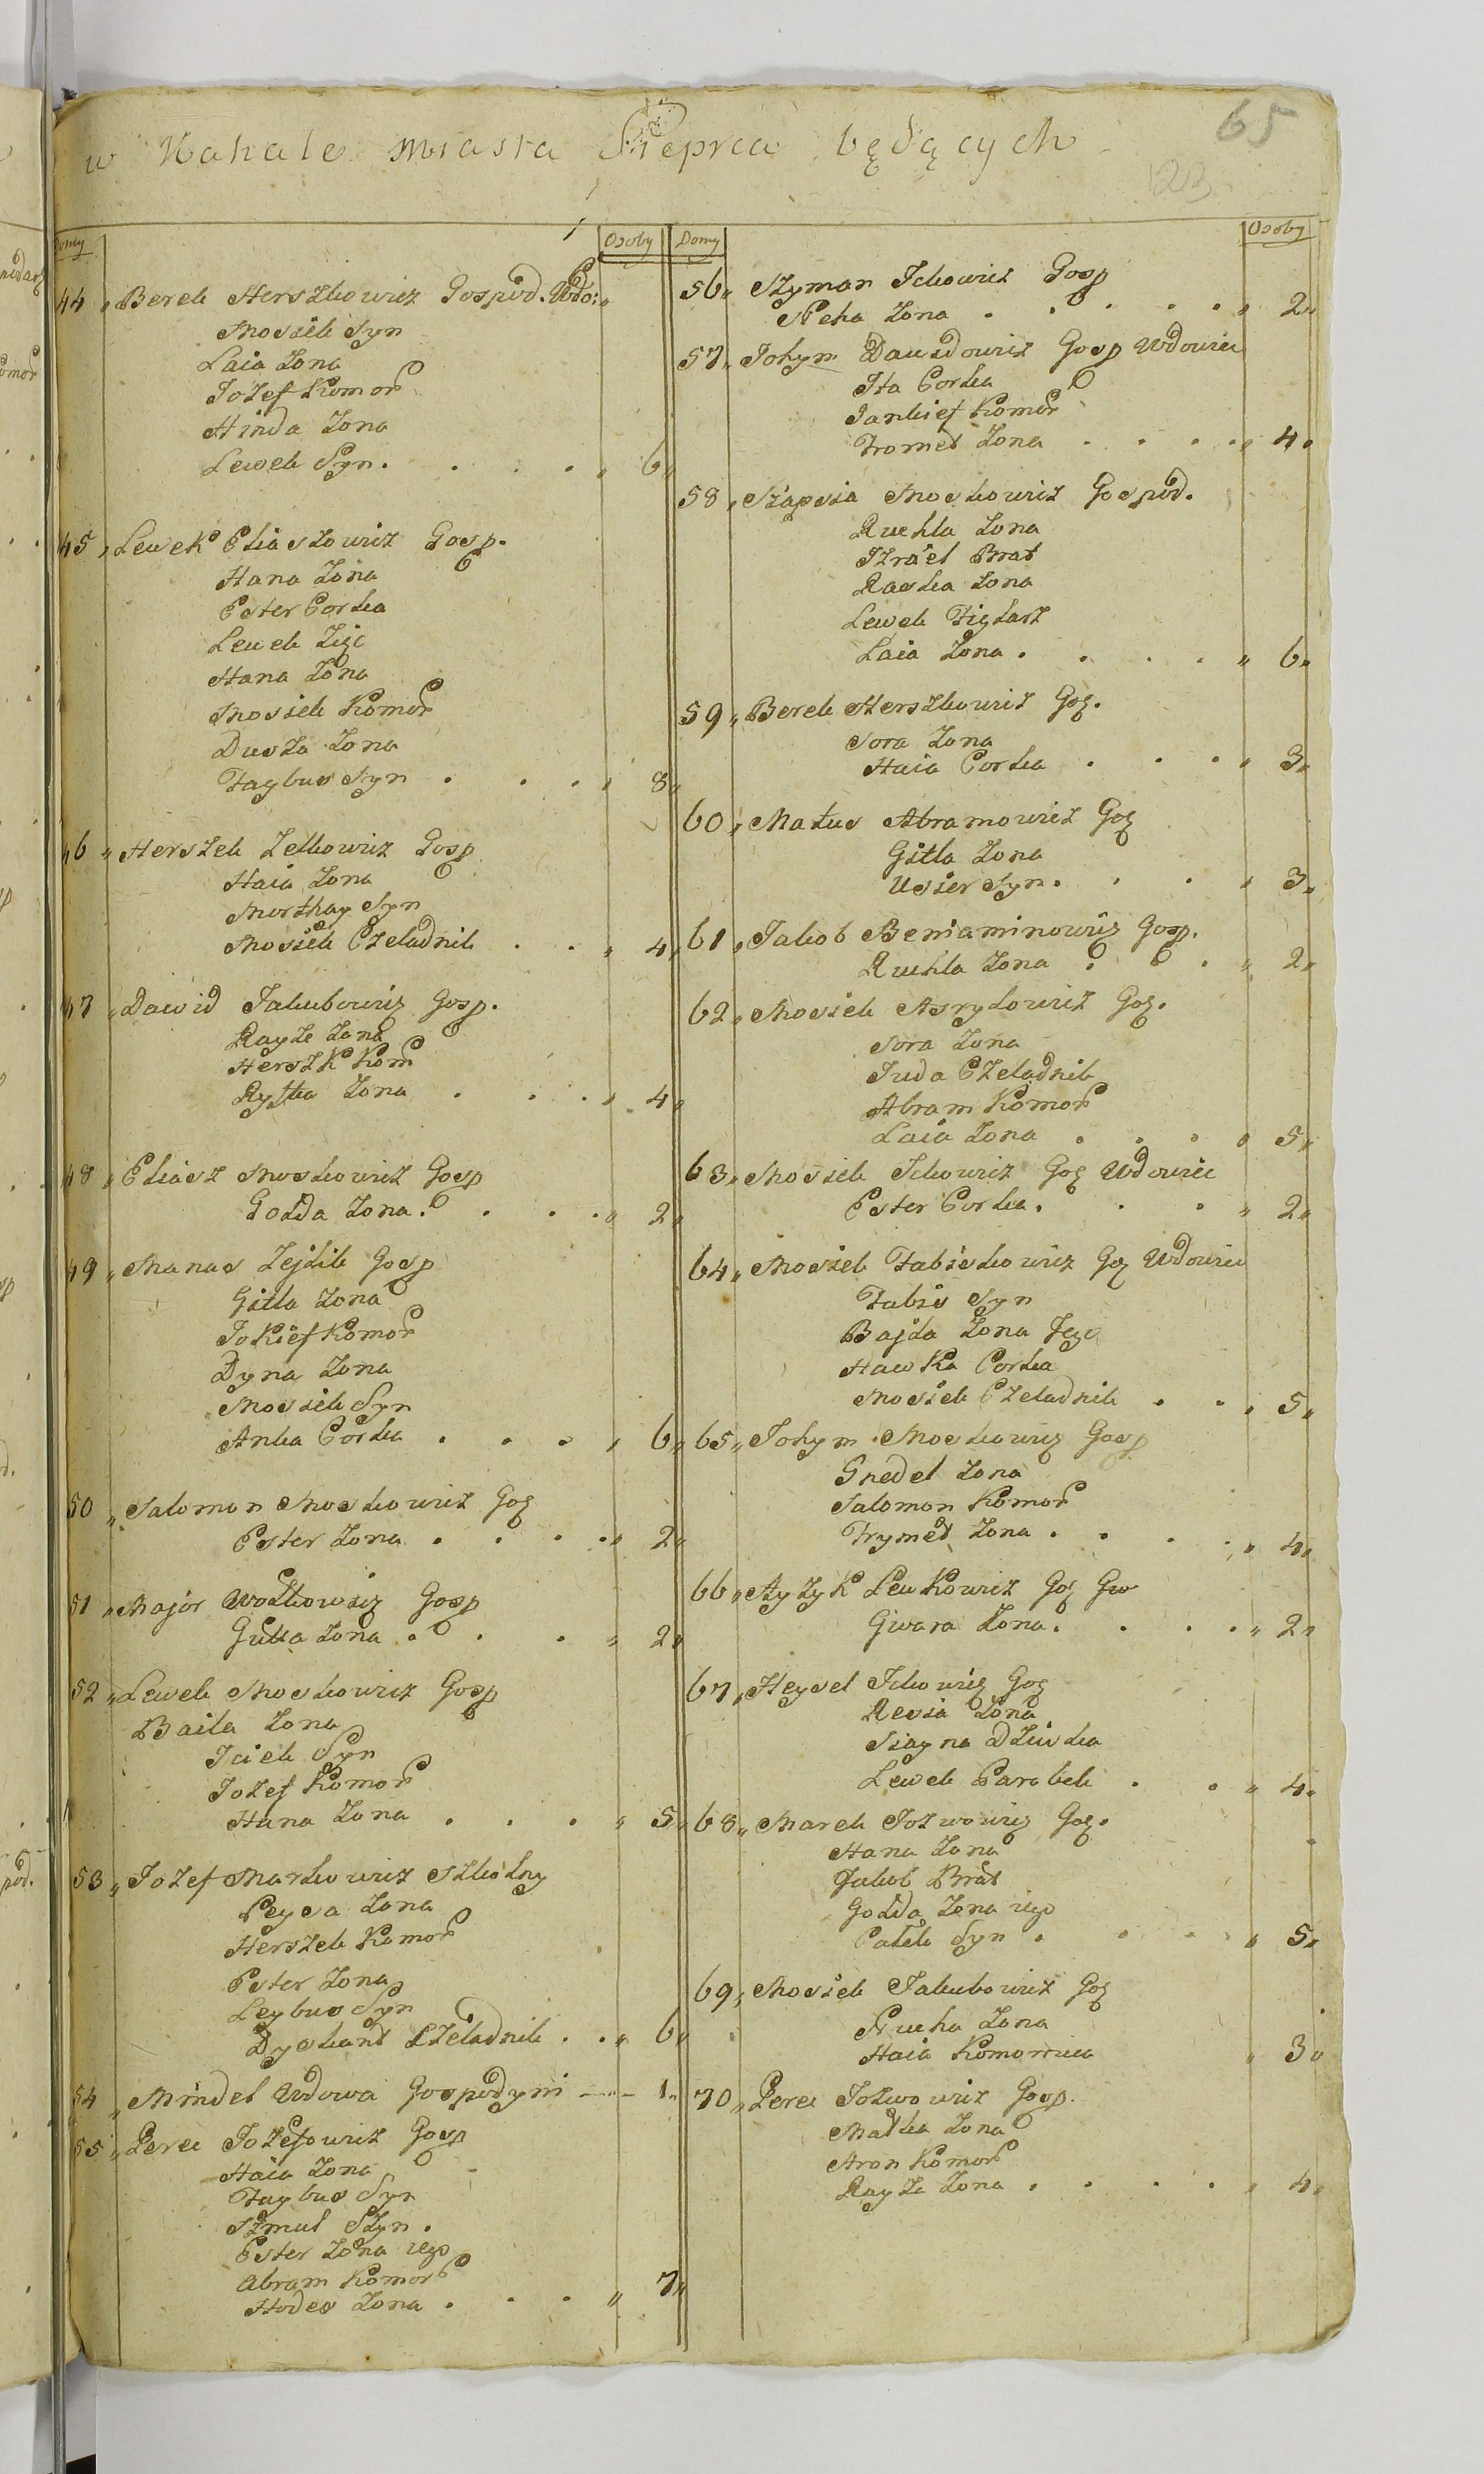 65
w Kahale miasta Sierpca będących
123
Domy Osoby
44 „ Berek Herszkowicz Gospod. Wdo: „
Mosiek Syn
Laia Zona
Jozef Komor
Hinda Zona
Lewek Syn . . . . „ 6 „
45 „ Lewek Eliaszowicz Gosp.
Hana Zona
Ester Corka
Lewek Zięć
Hana Zona
Mosiek Komor
Duszа Zona
Faybus Syn . . . „ 8 „
46 „ Herszek Zelkowicz Gosp
Haia Zona
Morthay Syn
Mosiek Czeladnik . . „ 4 „
47 „ Dawid Jakubowicz Gosp.
Rayze Zona
Herszk Kom
Ryfka Zona . . . „ 4 „
48 „ Eliasz Moskowicz Gosp
Golda Zona . . . „ 2 „
49 „ Manas Zejdlik Gosp
Gitla Zona
Jokief Komor
Dyna Zona
Mosiek Syn
Anka Corka . . . „ 6 „
50 „ Salomon Moskowicz Gos
Ester Zona . . . „ 2 „
51 „ Major Wolkowicz Gosp
Gutta Zona . . . „ 2 „
52 „ Lewek Moskowicz Gosp
Baila Zona
Iciek Syn
Jozef Komor
Hana Zona . . . „ 5 „
53 „ Jozef Markowicz Szkolny
Peysa Zona
Herszek Komor
Ester Zona
Leybus Syn
Dyskant Czeladnik . . „ 6 „
54 „ Mindel Wdowa Gospodyni — 1 „
55 „ Perec Jozefowicz Gosp
Haia Zona
Faybus Syn
Szmul Szyn .
Ester Zona iego
Abram Komor
Hodes Zona . . . „ 7 „
Domy Osoby
56 „ Szyman Ickowicz Gosp
Necha Zona . . . . „ 2 „
57 „ Johym Dawidowicz Gosp Wdowiec
Ita Corka
Jankief Komor
Fromet Zona . . . . „ 4 „
58 „ Szapsia Moskowicz Gospod.
Ruchla Zona
Izrael Brat
Raska Zona
Lewek Figlarz
Laia Zona . . . . „ 6 „
59 „ Berek Herszkowicz Gos.
Sora Zona
Haia Corka . . . „ 3 „
60 „ Matus Abramowicz Gos
Gitla Zona
Usier Syn . . . „ 3 „
61 „ Jakob Beniaminowicz Gosp.
Ruchla Zona . . . „ 2 „
62 „ Mosiek Asrylowicz Gos.
Sora Zona
Juda Czeladnik
Abram Komor
Laia Zona . . . . 5 „
63 „ Mosiek Ickowicz Gos Wdowiec
Ester Corka . . . „ 2 „
64 „ Mosiek Fabiskowicz Gos Wdowiec
Fabis Syn
Bajla Zona Jego
Hawka Corka
Mosiek Czeladnik . . „ 5 „
65 „ Johym Moskowicz Gosp
Gnedel Zona
Salomon Komor
Frymed Zona . . . . „ 4 „
66 „ Ayzyk Lewkowicz Gos Gw
Gwara Zona . . . . „ 2 „
67 „ Heysel Ickowicz Gos
Resia Zona
Siayna Dziwka
Lewek Parobek . . „ 4 „
68 „ Marek Jozwowicz Gos.
Hana Zona
Jakob Brat
Golda Zona iego
Calek Syn . . . „ 5 „
69 „ Mosiek Jakubowicz Gos
Frucha Zona
Haia Komornica „ 3 „
70 „ Perec Jozwowicz Gosp.
Malka Zona
Aron Komor
Rayze Zona . . . . „ 4 „